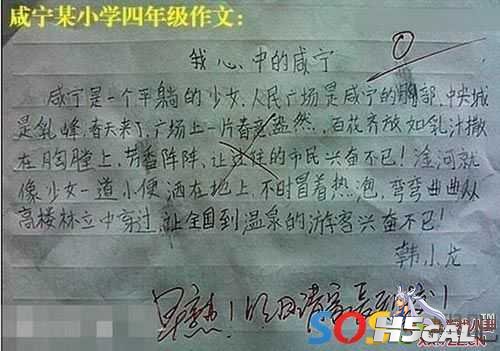 咸宁某小学四年级作文：
0
我心中的咸宁
咸宁是一个平躺的少女,人民广场是咸宁的胸部,中央城
是乳峰,春天来了,广场上一片春意盎然,百花齐放如乳汁撒
在胸膛上,芳香阵阵、让过往的市民兴奋不已!淦河就
像少女一道小便洒在地上,不时冒着热泡,弯弯曲曲从
高楼林立中穿过,让全国到温泉的游客兴奋不已!
韩小龙
早熟!明日请家长